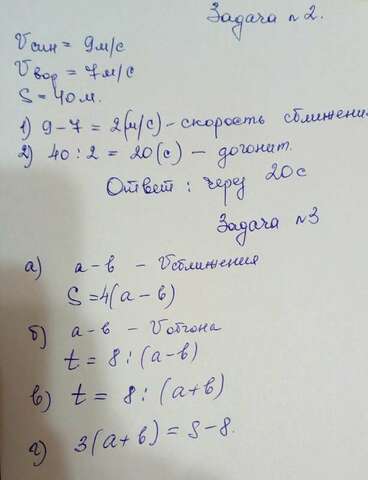 Задача №2.
Vсин = 9м/с
Vвор = 7м/с
S = 40м.
1) 9-7 = 2(м/с) - скорость сближени
2) 40 : 2 = 20(с) - догонит.
Ответ : через 20с
Задача №3
а) а-в - Vсближения
S=4(а-в)
б) а-в - Vобгона
t = 8 : (а-в)
в) t = 8 : (а+в)
г) 3(а+в) = S-8.